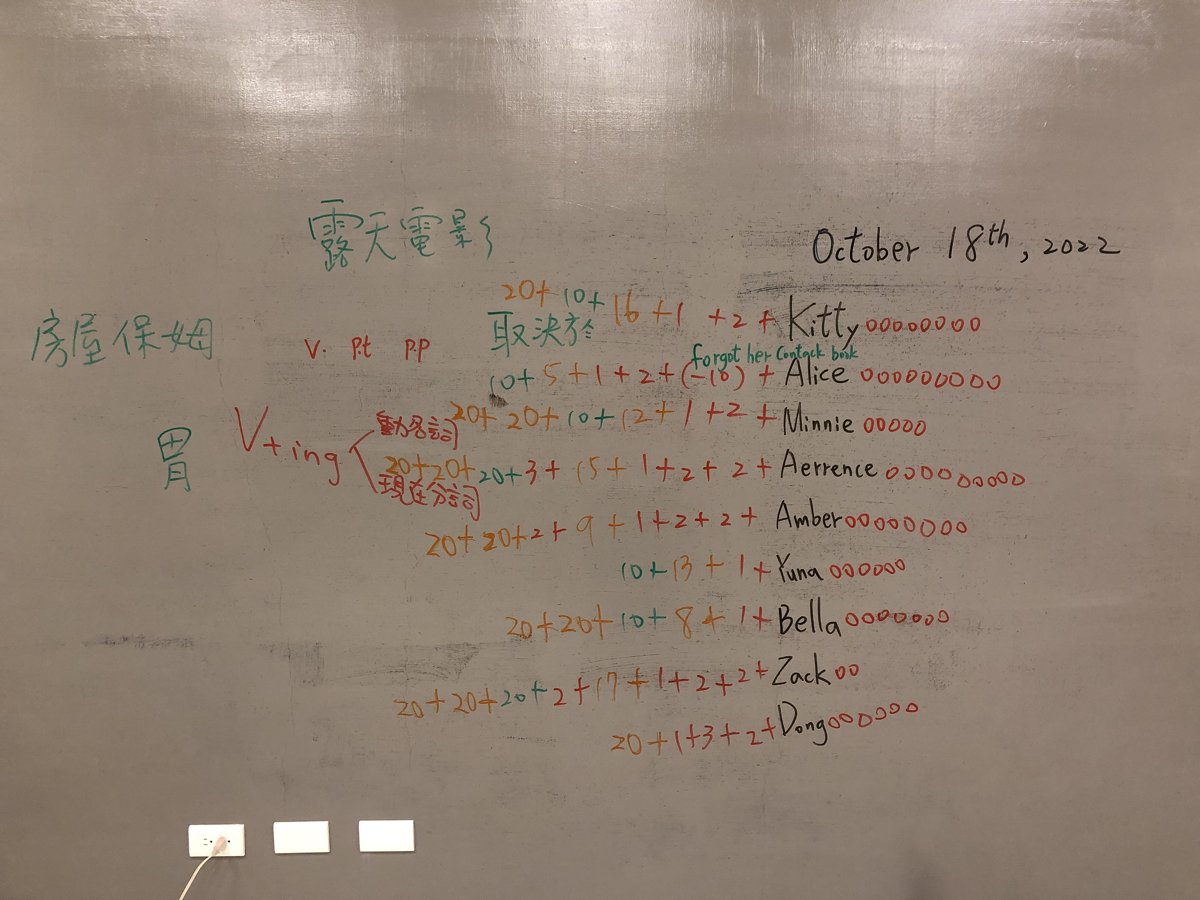 露天電影
October 18th, 2022
房屋保姆
v. P.t P.P
取決於
20+ 10+ 16 +1 +2 + Kitty oooooooo
forgot her Contack book
10+ 5 +1 +2 +(-10) + Alice ooooooooo
20+ 20+ 10+ 12 +1 +2 + Minnie ooooo
胃
V+ing
動名詞
現在分詞
20+20+20+3+ 15+ 1+2+ 2+ Aerrence ooooooooo
20+ 20+2+ 9 +1+2+2+ Amber oooooooo
10+ 13 + 1+ Yuna oooooo
20+20+ 10+ 8 + 1+ Bella ooooooo
20+20+20+2+17+1+2+2+ Zack oo
20+1+3+2+ Dong oooooo